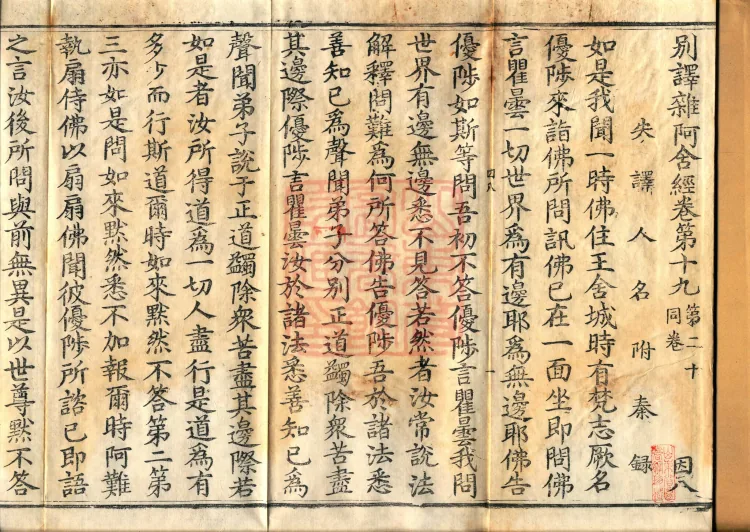 別譯雜阿舍經卷第十九 第二十同卷 因八
失譯人名附秦録
如是我聞一時佛住王舍城時有梵志厥名
優陟來詣佛所問訊佛已在一面坐即問佛
言瞿曇一切世界為有邊耶為無邊耶佛告
優陟如斯等問吾初不答優陟言瞿曇我問
世界有邊無邊悉不見答若然者汝常說法
解釋問難為何所答佛告優陟吾於諸法悉
善知已為聲聞弟子分別正道蠲除衆苦盡
其邊際優陟言瞿曇汝於諸法悉善知已為
聲聞弟子說于正道蠲除衆苦盡其邊際若
如是者汝所得道為一切人盡行是道為有
多少而行斯道爾時如來默然不答第二第
三亦如是問如來默然悉不加報爾時阿難
執扇侍佛以扇扇佛聞彼優陟所諮已即語
之言汝後所問與前無異是以世尊默不答